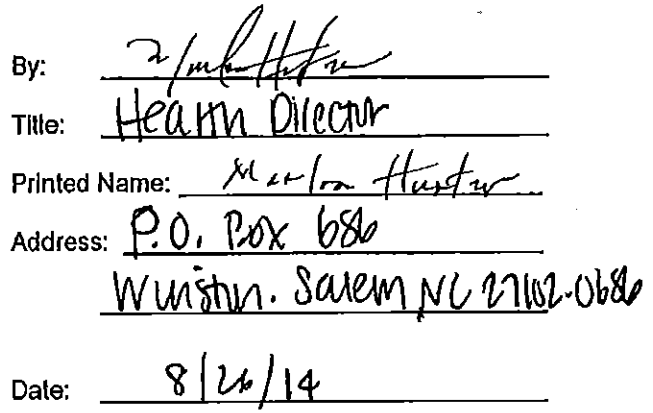 By: Marlon Hunter
Title: Health Director
Printed Name: Marlon Hunter
Address: P.O. Box 686
Winston-Salem NC 27102-0686
Date: 8/26/14